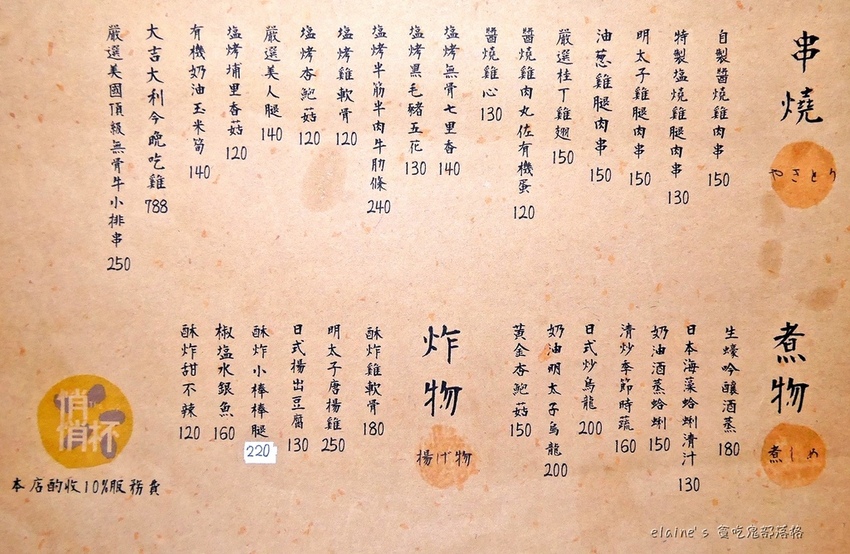 串燒
やきとり
自製醬燒雞肉串 150
特製塩燒雞腿肉串 130
明太子雞腿肉串 150
油蔥雞腿肉串 150
嚴選桂丁雞翅 150
醬燒雞肉丸佐有機蛋 120
醬燒雞心 130
塩烤無骨七里香 140
塩烤黑毛豬五花 130
塩烤半筋半肉牛肋條 240
塩烤雞軟骨 120
塩烤杏鮑菇 120
嚴選美人腿 140
塩烤埔里香菇 120
有機奶油玉米筍 140
大吉大利今晚吃雞 788
嚴選美國頂級無骨牛小排串 250
煮物
煮しめ
生蠔吟釀酒蒸 180
日本海藻蛤蜊清汁 130
奶油酒蒸蛤蜊 150
清炒季節時蔬 160
日式炒烏龍 200
奶油明太子烏龍 200
黃金杏鮑菇 150
炸物
揚げ物
酥炸雞軟骨 180
明太子唐揚雞 250
日式楊出豆腐 130
酥炸小棒棒腿 220
椒塩水銀魚 160
酥炸甜不辣 120
悄悄杯
本店酌收10%服務費
elaine's 貪吃鬼部落格